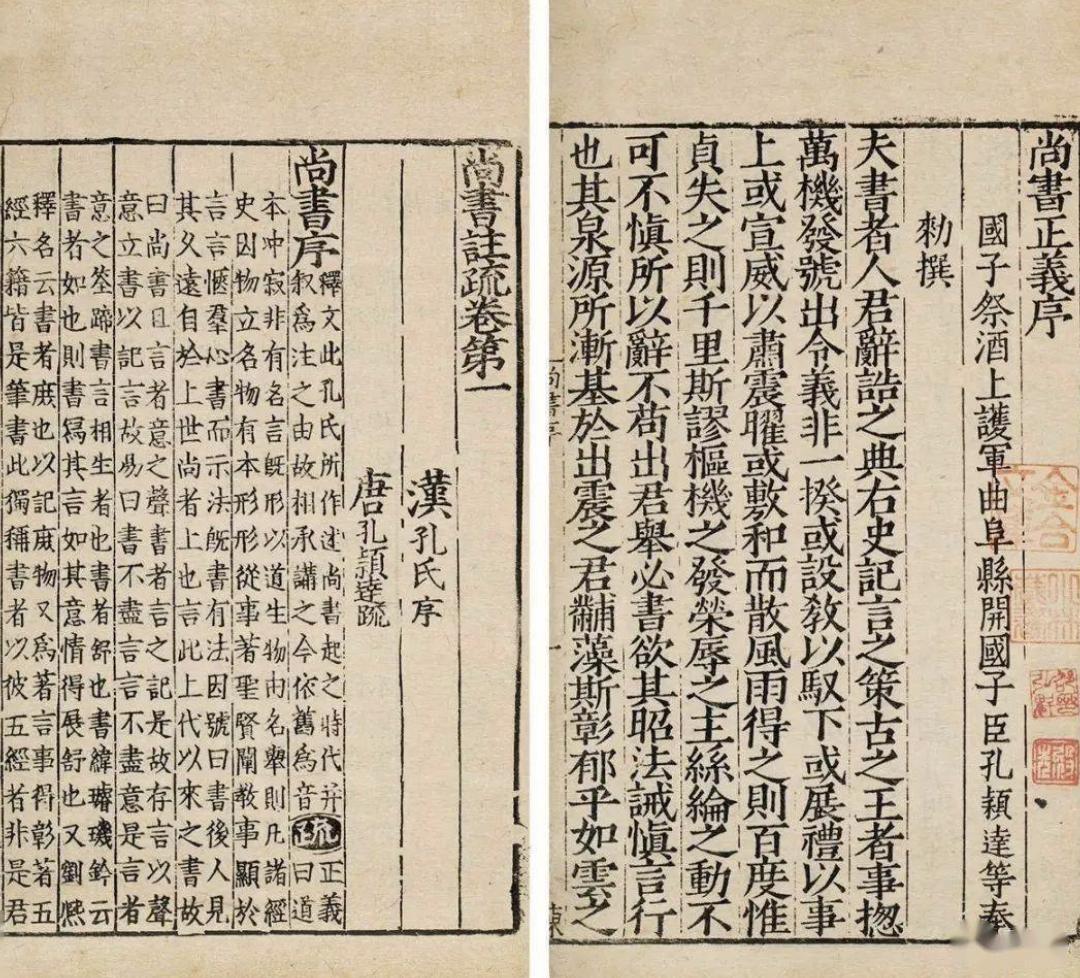 尚書正義序
國子祭酒上護軍曲阜縣開國子臣孔穎達等奉
勑撰
夫書者人君辭誥之典右史記言之策古之王者事揔
萬機發號出令義非一揆或設敎以馭下或展禮以事
上或宣威以肅震曜或敷和而散風雨得之則百度惟
貞失之則千里斯謬樞機之發榮辱之主絲綸之動不
可不慎所以辭不苟出君舉必書欲其昭法誡慎言行
也其泉源所漸基於出震之君黼藻斯彰郁乎如雲之
尚書註疏卷第一
漢孔氏序
唐孔穎達疏
尚書序
釋文此孔氏所作述尚書起之時代并
叙爲注之由故相承講之今依舊爲音
疏
正義
曰道
本冲寂非有名言旣形以道生物由名舉則凡諸經
史因物立名物有本形形從事著聖賢闡敎事顯於
言言愜羣心書而示法旣書有法因號曰書後人見
其久遠自於上世尚者上也言此上代以來之書故
曰尚書且言者意之聲書者言之記是故存言以聲
意立書以記言故易曰書不盡言言不盡意是言者
意之筌蹄書言相生者也書者舒也書緯璿璣鈐云
書者如也則書寫其言如其意情得展舒也又劉熙
釋名云書者庶也以記庶物又爲著言事得彰著五
經六籍皆是筆書此獨稱書者以彼五經者非是君